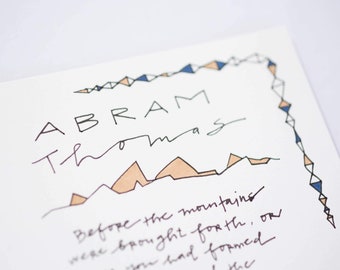 ABRAM
Thomas
Before the mountains
were brought forth, or
you had formed
the